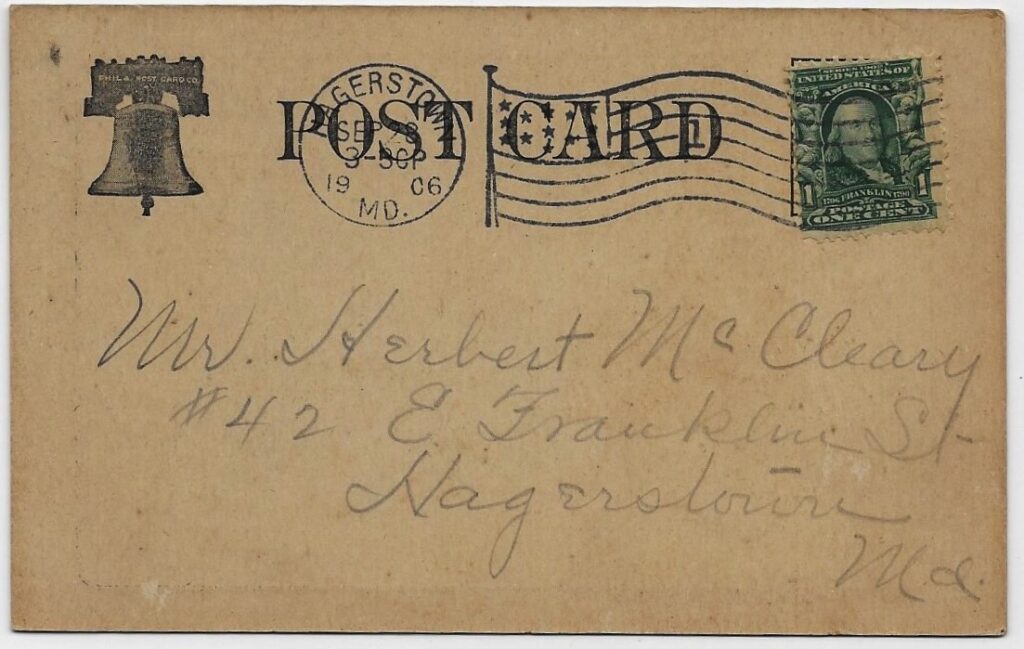 PHILA. POST CARD CO.
POST CARD
HAGERSTOWN
SEP 28
3-30P
19 06
MD.
1
SERIES 1902
UNITED STATES OF
AMERICA
1 1
1706 FRANKLIN 1790
POSTAGE
ONE CENT
Mr. Herbert Mc Cleary
#42 E. Franklin St
Hagerstown
Md.